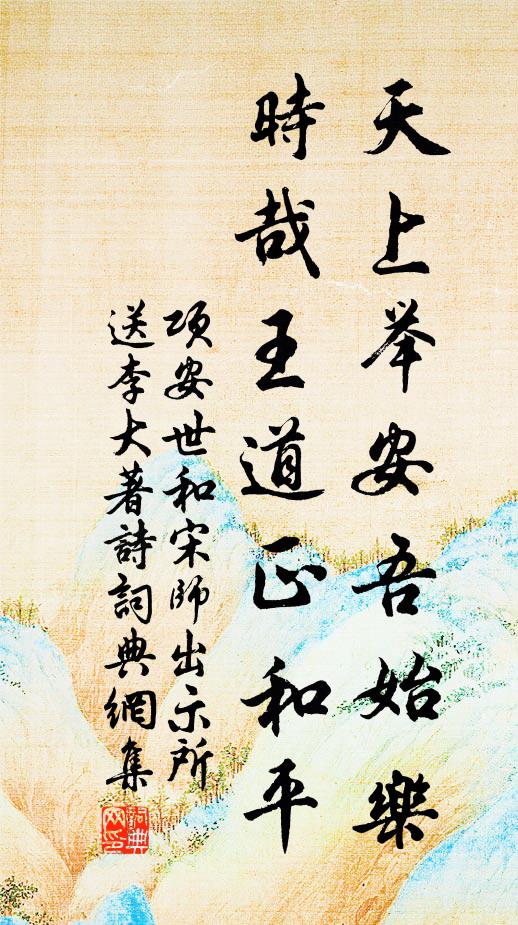 天上举安吾始樂
時哉王道正和平
项安世和宋師出示所
送李大著詩詞典網集